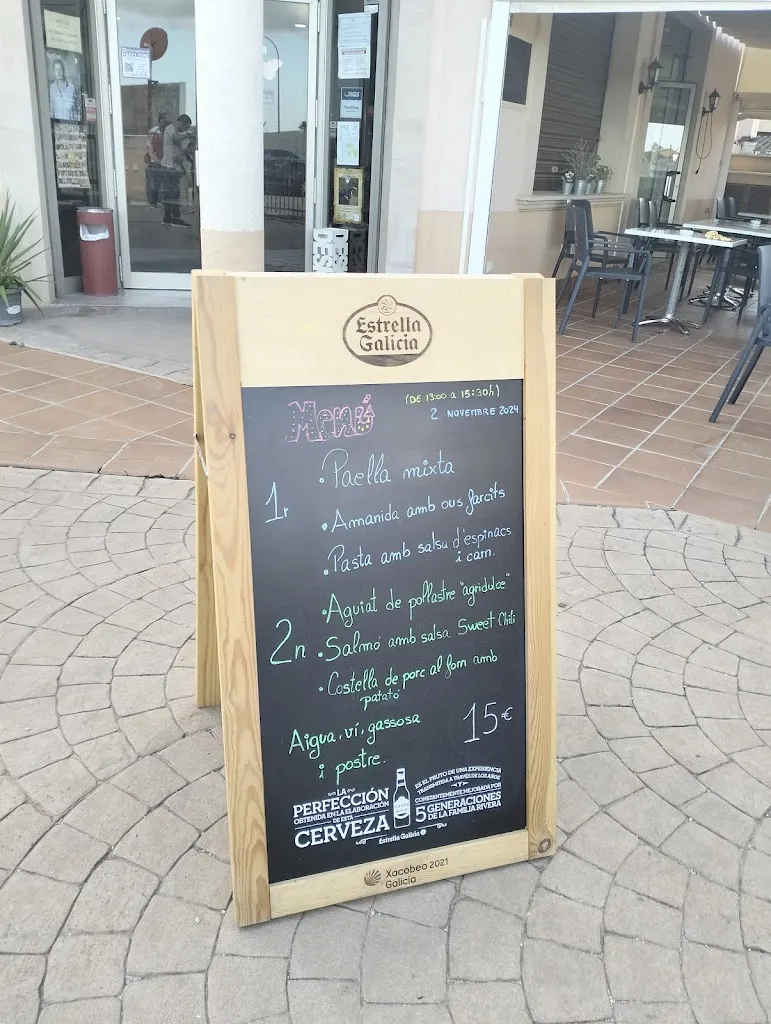 Estrella
Galicia
Menú
(DE 13:00 a 15:30h)
2 NOVEMBRE 2024
1r
• Paella mixta
• Amanida amb ous farcits
• Pasta amb salsa d'espinacs
i carn.
2n
• Aguiat de pollastre "agridulce"
• Salmó amb salsa Sweet Chili
• Costella de porc al forn amb
patató
Aigua, ví, gassosa
i postre.
15€
LA
PERFECCIÓN
OBTENIDA EN LA ELABORACIÓN
DE ESTA
CERVEZA
ES EL FRUTO DE UNA EXPERIENCIA
TRANSMITIDA A TRAVÉS DE LOS AÑOS
Y
CONSTANTEMENTE MEJORADA POR
5 GENERACIONES
DE LA FAMILIA RIVERA
Estrella Galicia
Xacobeo 2021
Galicia